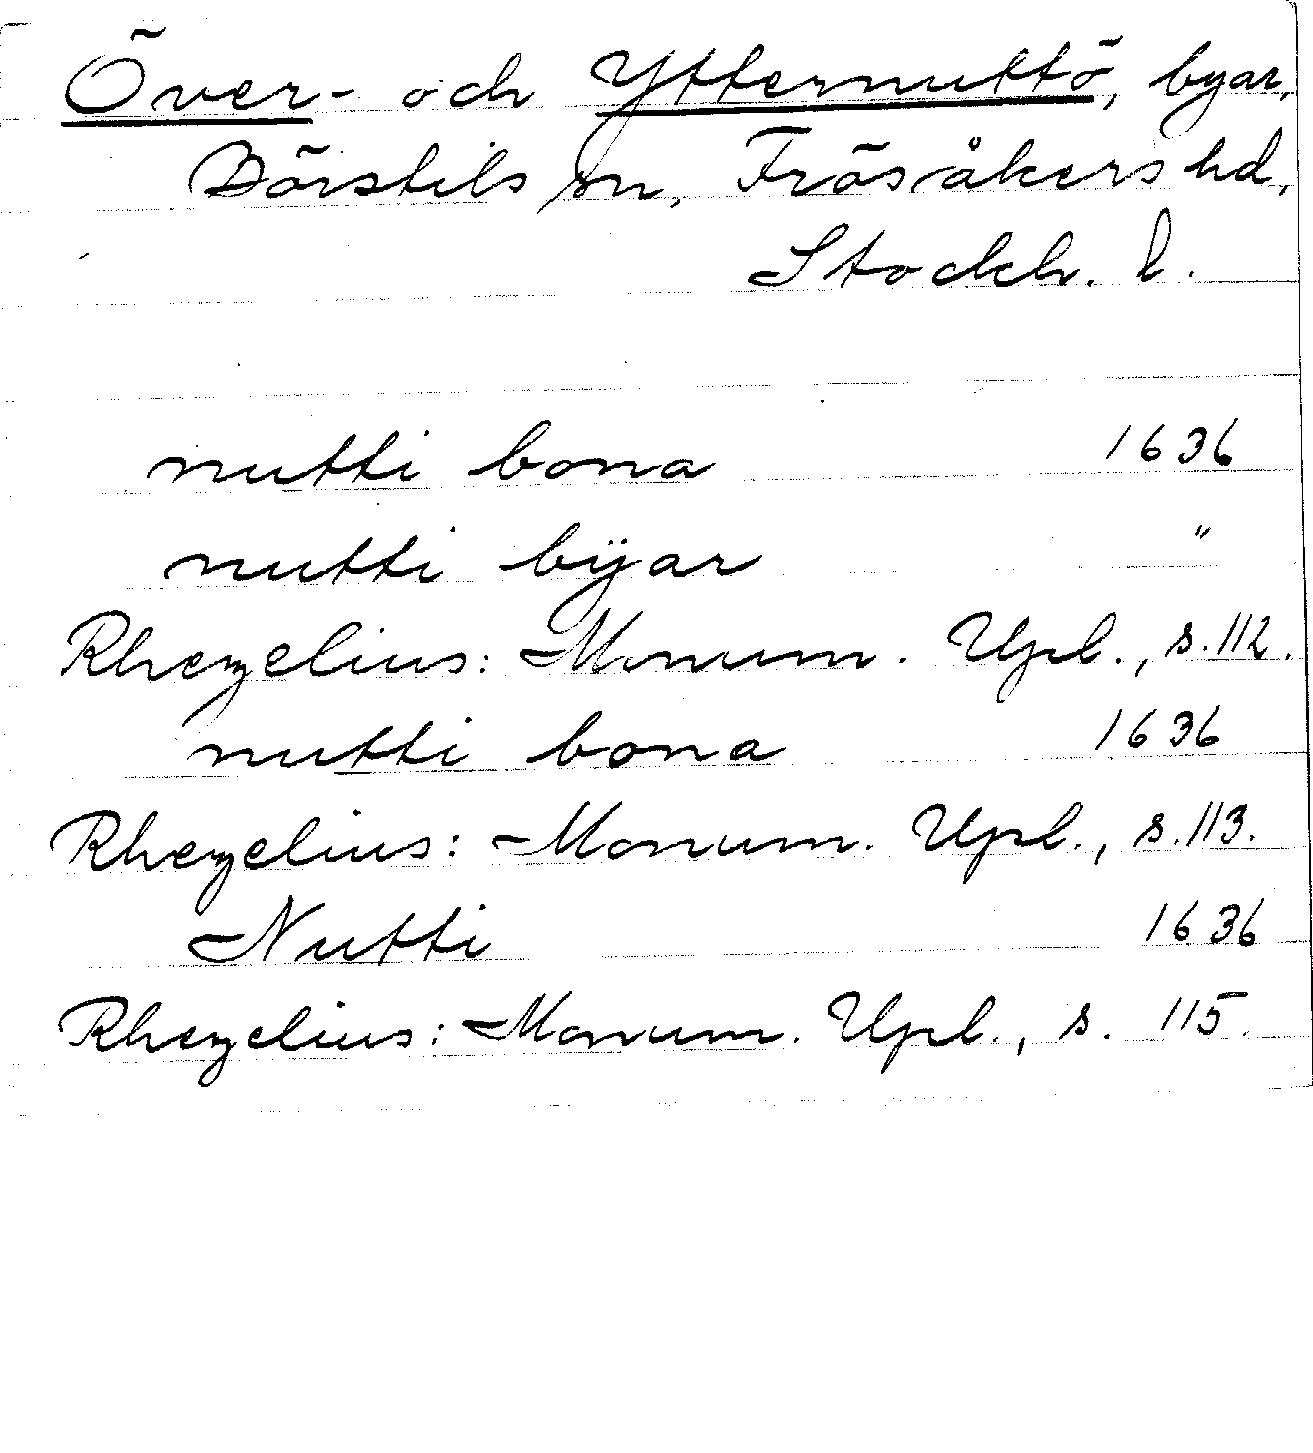 Över- och Ytternuttö, byar,
Börstils sn, Frösåkers hd,
Stockh. l.
nutti bona 1636
nutti bÿar "
Rhezelius: Monum. Upl., s. 112.
nutti bona 1636
Rhezelius: Monum. Upl., s. 113.
Nutti 1636
Rhezelius: Monum. Upl., s. 115.